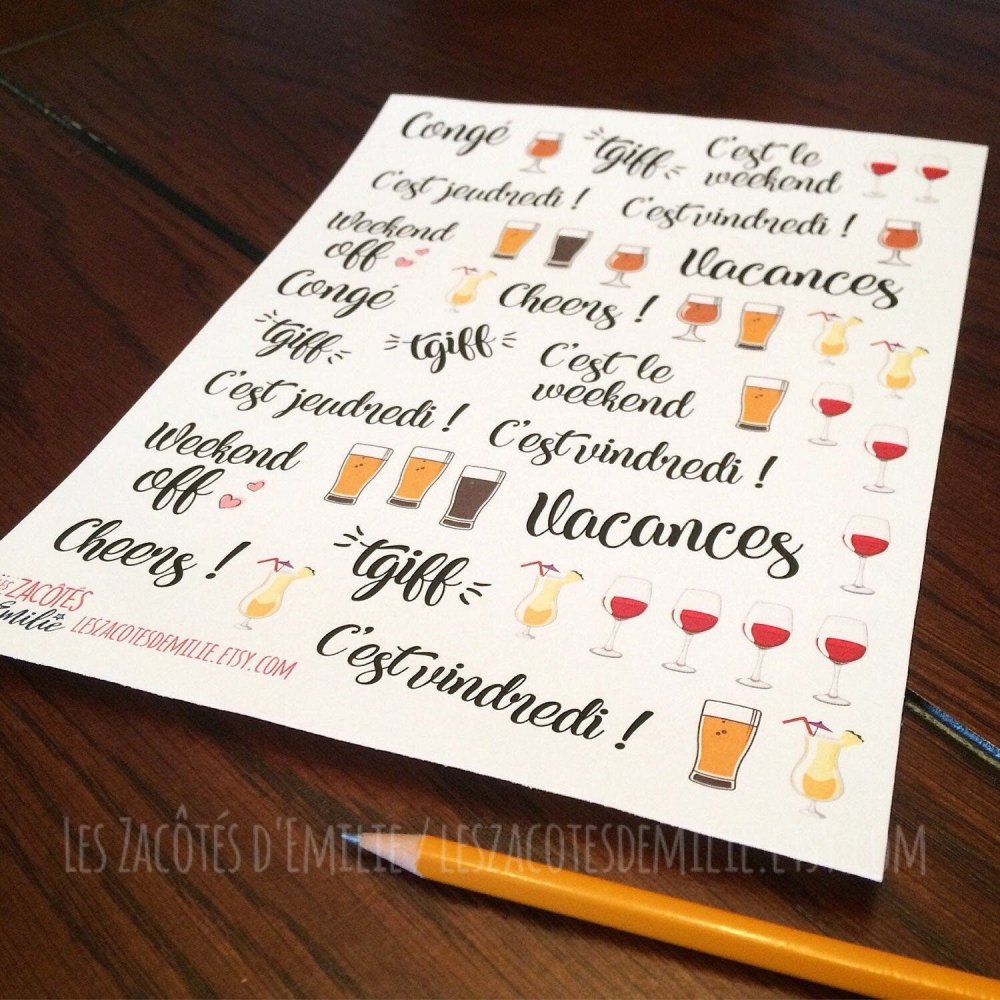 Congé
tgiff
C'est le
weekend
C'est jeudredi !
C'est vindredi !
Weekend
off
Vacances
Congé
Cheers !
tgiff
tgiff
C'est le
weekend
C'est jeudredi !
C'est vindredi !
Weekend
off
Vacances
Cheers !
tgiff
Les Zacôtés
Emilie
leszacotesdemilie.etsy.com
C'est vindredi !
Les Zacôtés d'Emilie / leszacotesdemilie.etsy.com